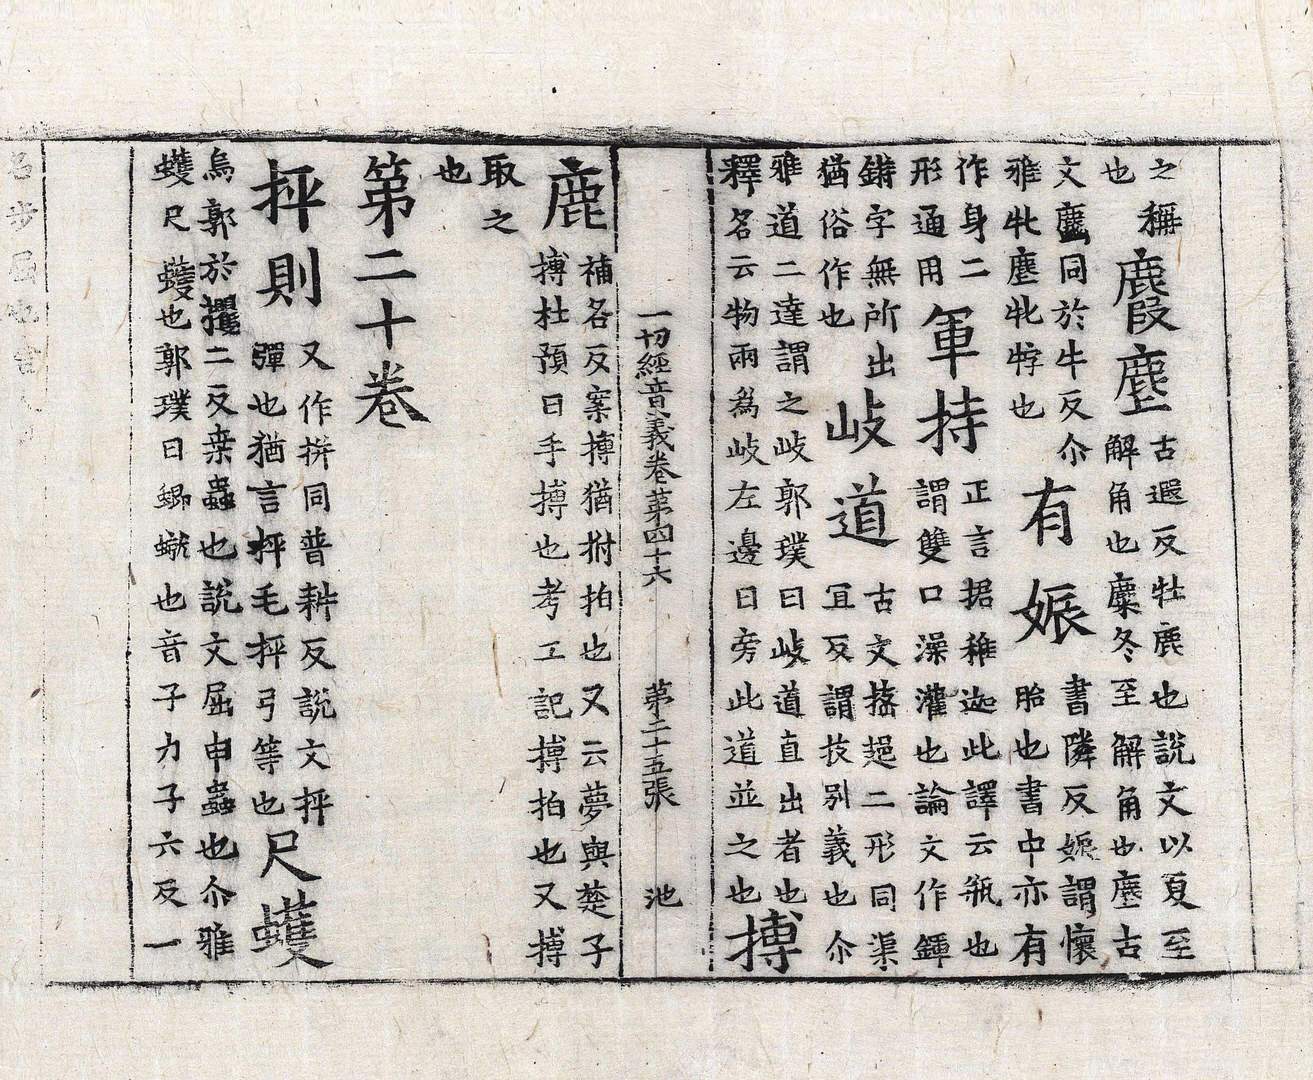 之稱
也
麚麈
古遐反牡鹿也說文以夏至
解角也麋冬至解角也麈古
文同於牛反尒
雅牝麈牝牸也
有娠
書隣反娠謂懷
胎也書中亦有
作身二
形通用
軍持
正言据稚迦此譯云瓶也
謂雙口澡灌也論文作鍕
錯字無所出
猶俗作也
岐道
古文二形同渠
宜反謂技別義也尒
雅道二達謂之岐郭璞曰岐道直出者也
釋名云物兩爲岐左邊曰旁此道並之也
搏
一切經音義卷苐四十六 苐二十五張 池
鹿
補各反案搏猶拊拍也又云夢與楚子
搏杜預曰手搏也考工記搏拍也又搏
取之
也
第二十卷
抨則
又作拼同普耕反說文抨
彈也猶言抨毛抨弓等也
尺蠖
烏郭於攫二反桒蟲也說文屈申蟲也尒雅
蠖尺蠖也郭璞曰蝍䗩也音子力子六反一